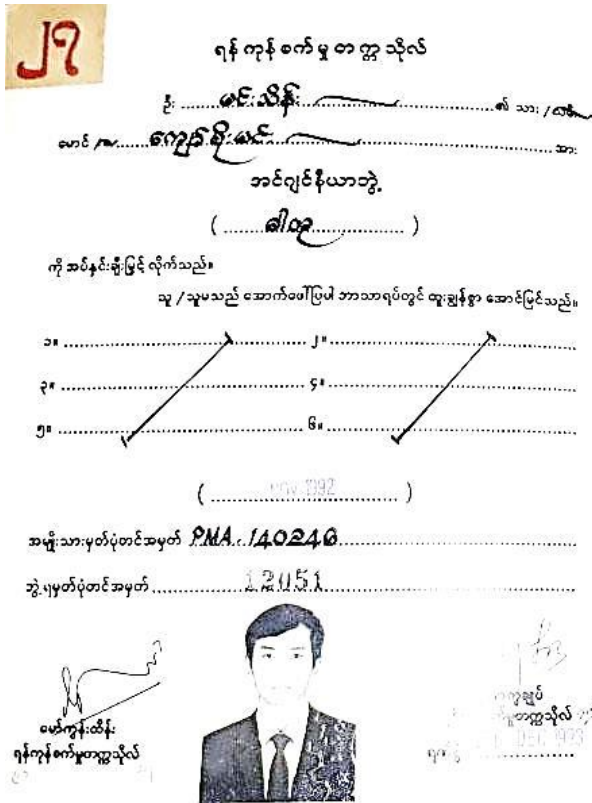 ၂၇
ရန်ကုန်စက်မှုတက္ကသိုလ်
ဦး မင်းသိန်း ၏ သား /
မောင် / ကျော်စိုးမင်း အား
အင်ဂျင်နီယာဘွဲ့
( ဓါတု )
ကို အပ်နှင်းချီးမြှင့်လိုက်သည်။
သူ / သူမသည် အောက်ဖော်ပြပါ ဘာသာရပ်တွင် ထူးချွန်စွာ အောင်မြင်သည်။
၁။ ၂။
၃။ ၄။
၅။ ၆။
( NOV 1992 )
အမျိုးသားမှတ်ပုံတင်အမှတ် PMA. 140246
ဘွဲ့ရမှတ်ပုံတင်အမှတ် 12051
မော်ကွန်းထိန်း
ရန်ကုန်စက်မှုတက္ကသိုလ်
ပါမောက္ခချုပ်
စက်မှုတက္ကသိုလ်
DEC 1993